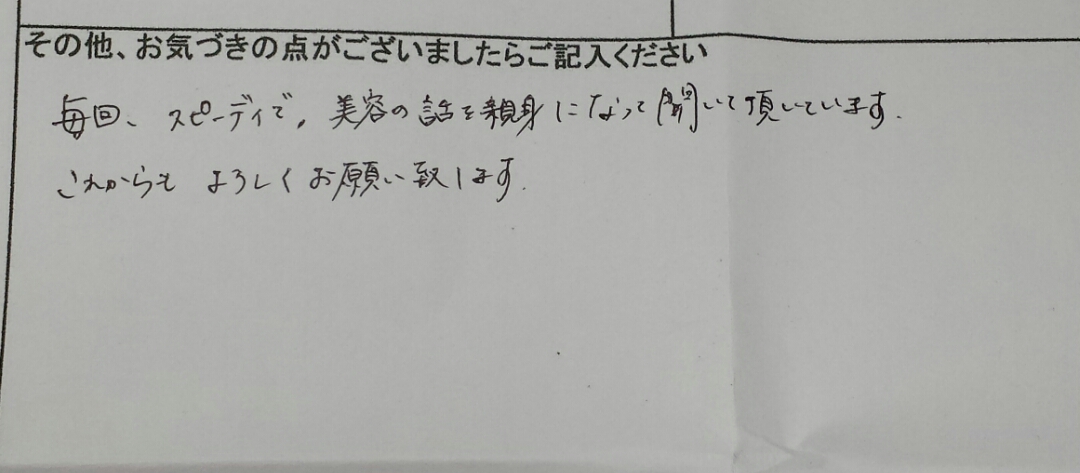 その他、お気づきの点がございましたらご記入ください
毎回、スピーディで、美容の話を親身になって聞いて頂いています.
これからも よろしくお願い致します.